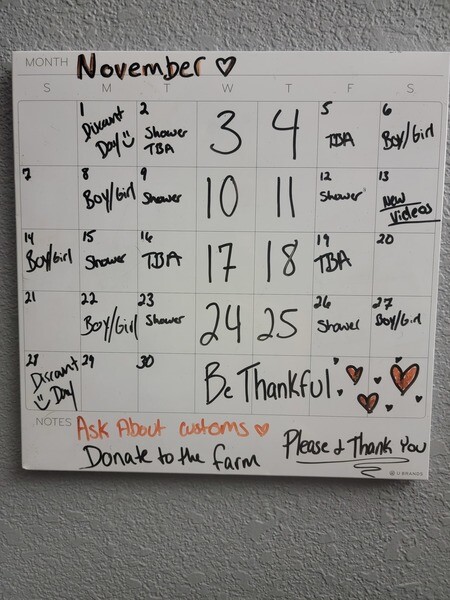 MONTH November
S M T W T F S
1 Discount Day
2 Shower TBA
3
4
5 TBA
6 Boy/Girl
7
8 Boy/Girl
9 Shower
10
11
12 Shower
13 New Videos
14 Boy/Girl
15 Shower
16 TBA
17
18
19 TBA
20
21
22 Boy/Girl
23 Shower
24
25
26 Shower
27 Boy/Girl
28 Discount Day
29
30
Be Thankful
NOTES Ask About customs
Donate to the farm
Please & Thank You
U BRANDS